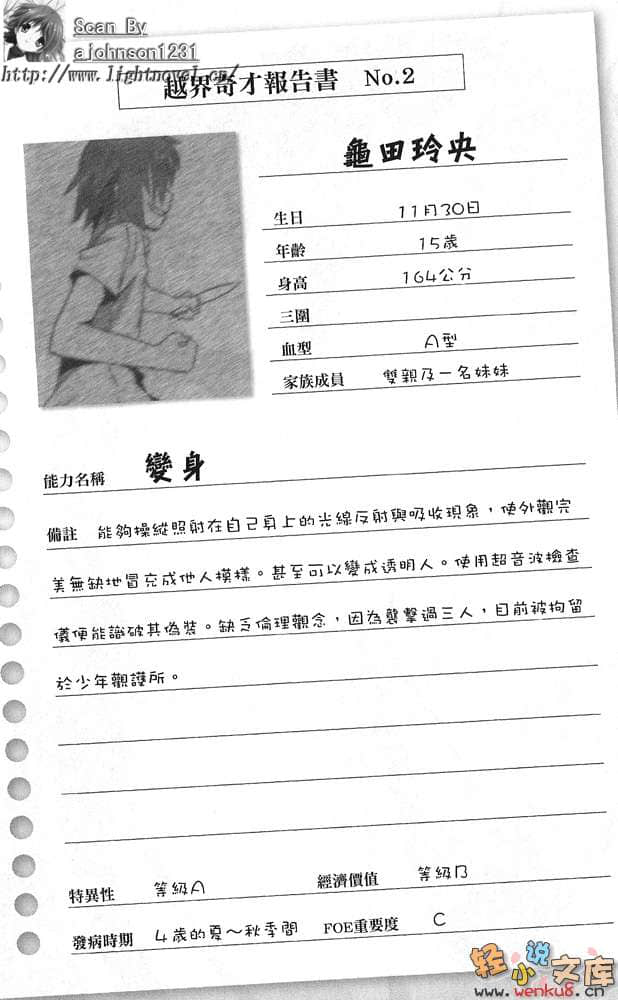 Scan By
ajohnson1231
http://www.lightnovel.cn/
越界奇才報告書 No.2
龜田玲央
生日 11月30日
年齡 15歲
身高 164公分
三圍
血型 A型
家族成員 雙親及一名妹妹
能力名稱 變身
備註 能夠操縱照射在自己身上的光線反射與吸收現象，使外觀完
美無缺地冒充成他人模樣。甚至可以變成透明人。使用超音波檢查
儀便能識破其偽裝。缺乏倫理觀念，因為襲擊過三人，目前被拘留
於少年觀護所。
特異性 等級A 經濟價值 等級B
發病時期 4歲的夏～秋季間 FOE重要度 C
轻小说文库
www.wenku8.cn